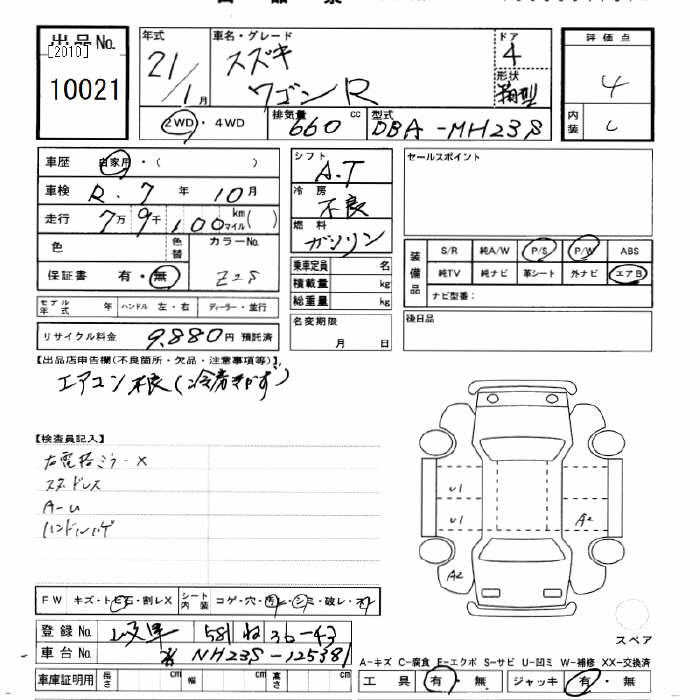 出品No.
[2010]
10021
年式
21/1月
車名・グレード
スズキ
ワゴンR
ドア
4
形状
箱型
評価点
4
内装
C
2WD・4WD
排気量
660 cc
型式
DBA-MH23S
車歴 自家用・( )
車検 R.7年10月
走行 7万9千100 km マイル( )
色
色替
カラーNo.
Z2S
保証書 有・無
モデル年式 年 ハンドル 左・右 ディーラー・並行
リサイクル料金 9,880円 預託済
シフト
A.T
冷房
不良
燃料
ガソリン
乗車定員 名
積載量 kg
総重量 kg
名変期限
月 日
セールスポイント
装備品
S/R 純A/W P/S P/W ABS
純TV 純ナビ 革シート 外ナビ エアB
ナビ型番:
後日品
【出品店申告欄(不良箇所・欠品・注意事項等)】
エアコン不良(冷え
【検査員記入】
右電格ミラーX
スタッドレス
A-U
ハンドルハゲ
U1
U1
A2
A2
スペア
FW キズ・トビ石・割レX
シート内装 コゲ・穴・汚レ・シミ・破レ・
登録No. 岐阜 581 ね 36-43
車台No. MH23S-125381
車庫証明用 長さ cm 幅 cm 高さ cm
A-キズ C-腐食 E-エクボ S-サビ U-凹ミ W-補修 XX-交換済
工具 有・無 ジャッキ 有・無